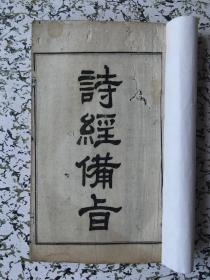 詩經備旨